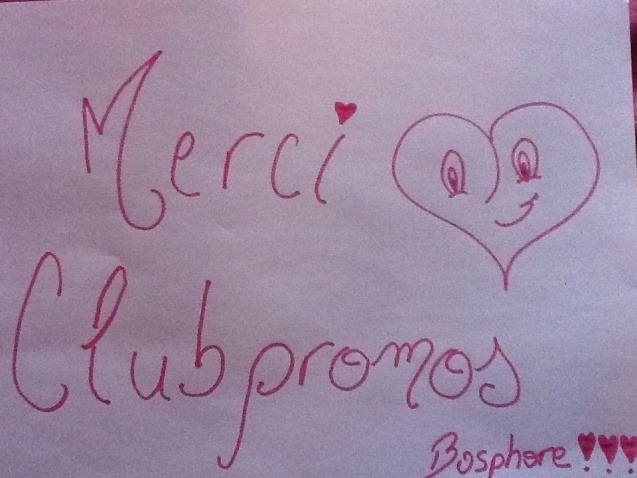 Merci
Clubpromos
Bosphore !!!